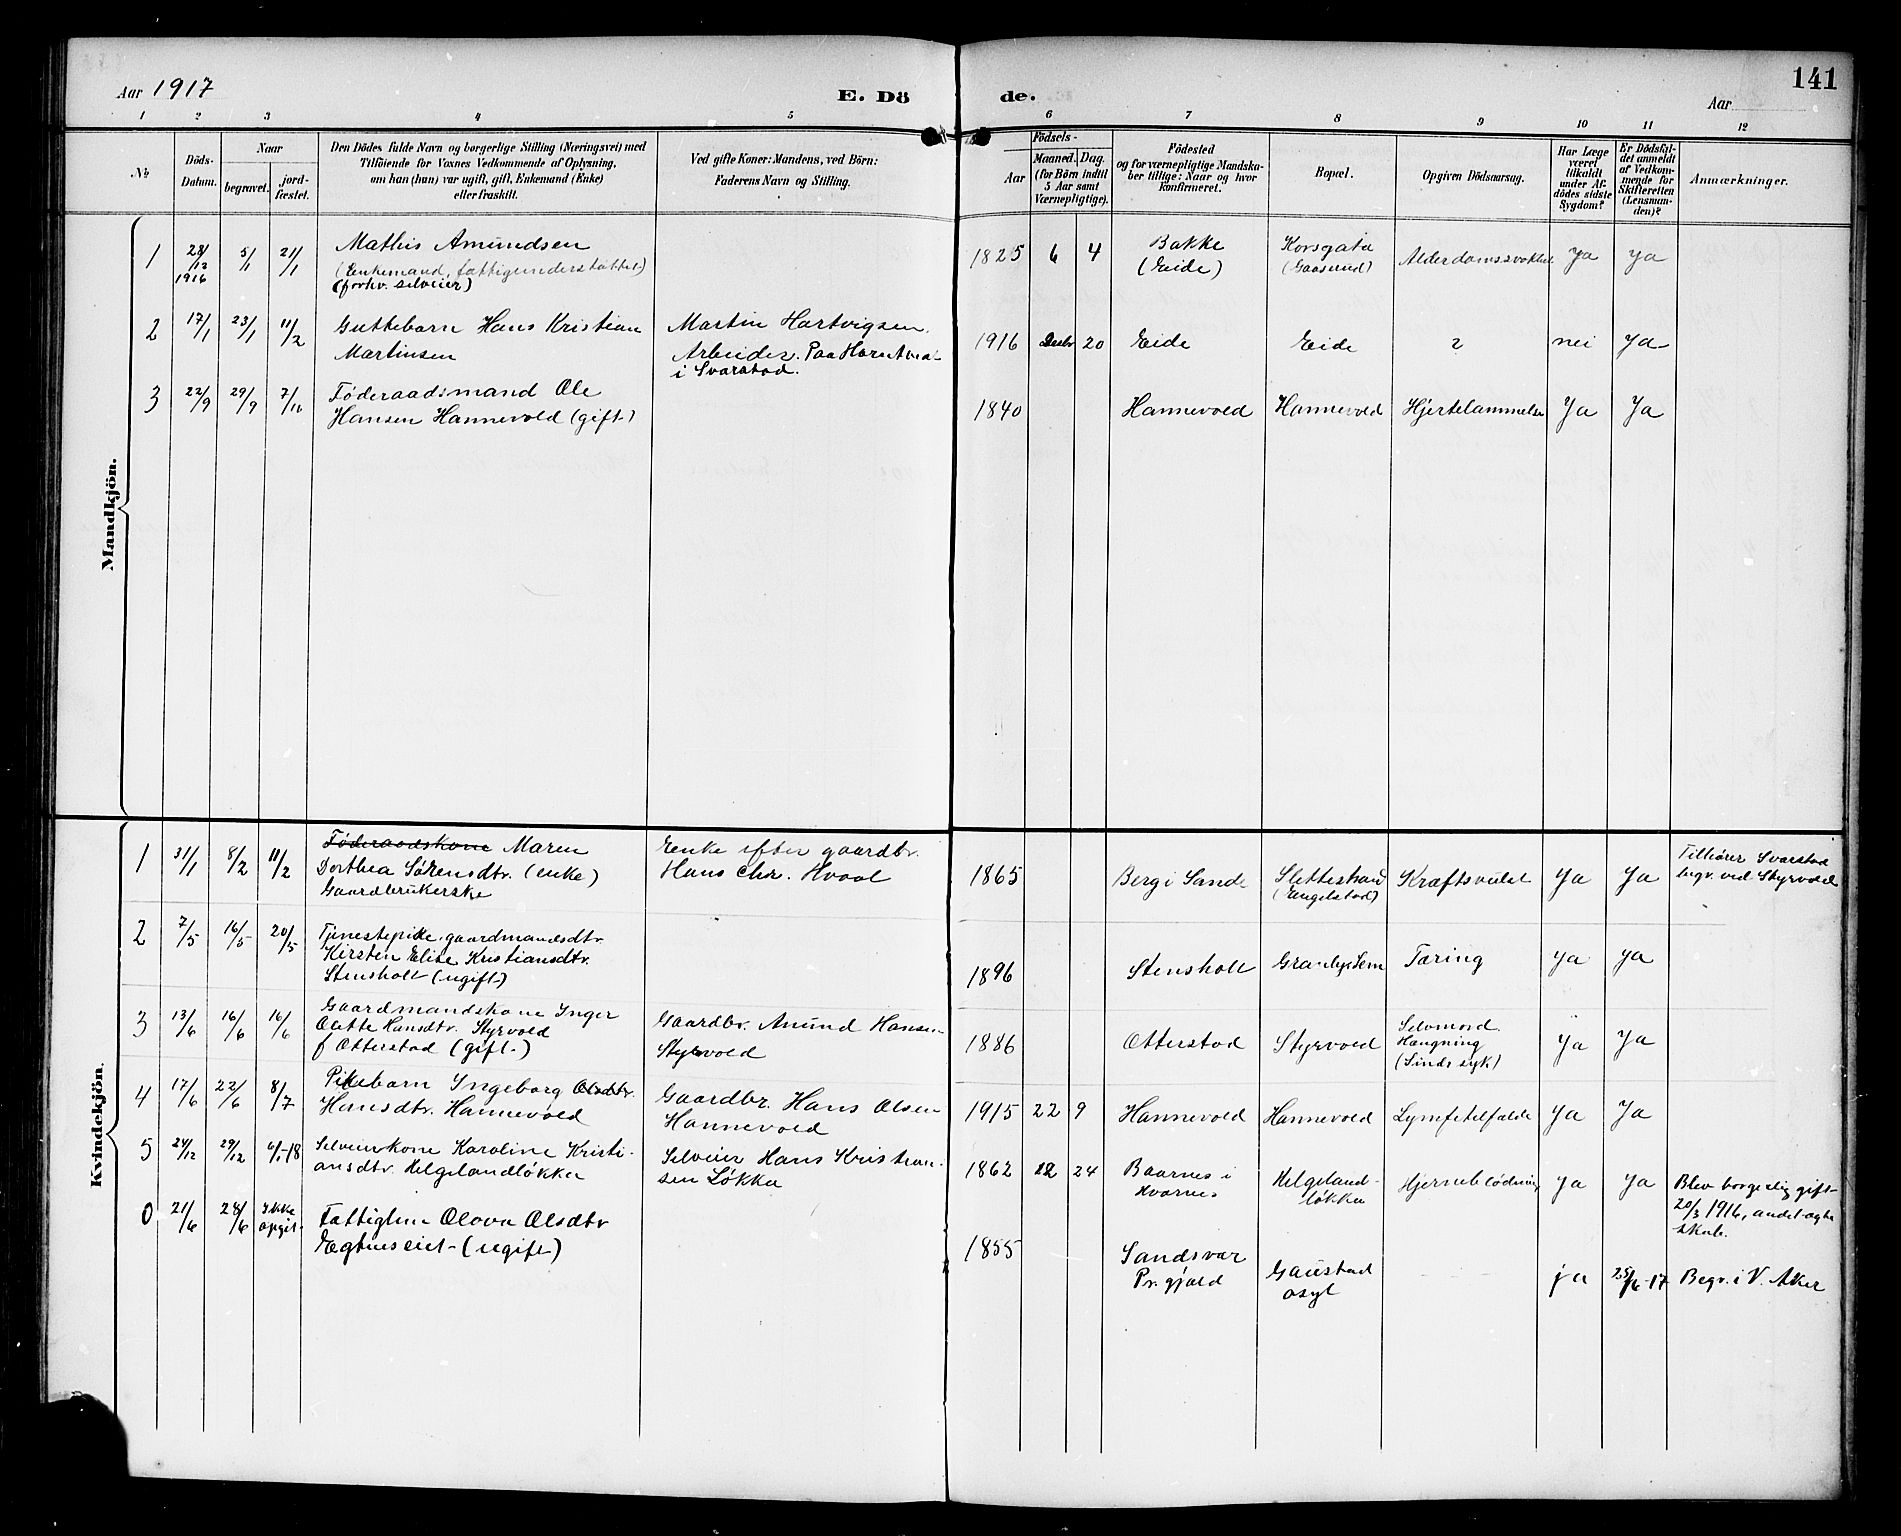 Aar 1917
E. Dö
de.
Aar
141
1 2 3 4 5 6 7 8 9 10 11 12
No
Döds-
Datum.
Naar
begravet.
jord-
fæstet.
Den Dödes fulde Navn og borgerlige Stilling (Næringsvei) med
Tilföiende for Voxnes Vedkommende af Oplysning,
om han (hun) var ugift, gift, Enkemand (Enke)
eller fraskilt.
Ved gifte Koner: Mandens, ved Börn:
Faderens Navn og Stilling.
Födsels-
Aar
Maaned. Dag.
(for Börn indtil
5 Aar samt
Værnepligtige).
Födested
og for værnepligtige Mandska-
ber tillige: Naar og hvor
Konfirmeret.
Bopæl.
Opgiven Dödsaarsag.
Har Læge
været
tilkaldt
under Af-
dödes sidste
Sygdom?
Er Dödsfal-
det anmeldt
af Vedkom-
mende for
Skifteretten
(Lensman-
den)?
Anmærkninger.
Mandkjön.
1 28/12 1916 5/1 21/1 Mathis Amundsen
(Enkemand, fattigunderstøttet)
(forhv. selveier)
1825 6 4 Bakke (Eide) Korsgata (Gaaserud) Alderdomssvakhet Ja Ja
2 17/1 23/1 11/2 Guttebarn Hans Kristian
Martinsen
Martin Hartvigsen.
Arbeider. Paa
i Svarstad.
1916 Decbr 20 Eide Eide ? nei Ja
3 22/9 29/9 7/10 Føderaadsmand Ole
Hansen Hannevold (gift)
1840 Hannevold Hannevold Hjertelammelse Ja Ja
Kvindekjön.
1 31/1 8/2 11/2 Føderaadskone Maren
Dorthea Sørensdtr. (enke)
Gaardbrukerske
Enke efter gaardbr.
Hans Chr. Hvaal
1865 Berg i Sande (Engelstad) Kræftsvulst Ja Ja
Tilhører Svarstad
begr. ved Styrvold
2 7/5 16/5 20/5 Tjenestepike, gaardmandsdtr.
Kirsten Elise Kristiansdtr.
Stensholt (ugift)
1896 Stensholt Sem Tæring Ja Ja
3 13/6 16/6 16/6 Gaardmandskone Inger
Olette Hansdtr. Styrvold
f Otterstad (gift)
Gaardbr. Amund Hansen
Styrvold
1886 Otterstad Styrvold Selvmord.
Hængning
(Sindssyk) Ja Ja
4 17/6 22/6 8/7 Pikebarn Ingeborg Olsdtr.
Hansdtr. Hannevold
Gaardbr. Hans Olsen
Hannevold
1915 22 9 Hannevold Hannevold Ja Ja
5 24/12 29/12 6/1-18 Selveierkone Karoline Kristi-
ansdtr. Helgelandløkka
Selveier Hans Kristian-
sen Løkka
1862 12 24 Baarnes i
Hvarnes
Helgeland-
løkka
Hjerneblødning Ja Ja
Blev borgerlig gift
20/3 1916, andet ægte
skab.
0 21/6 28/6 Ikke
opgit.
Fattiglem Olava Olsdtr
(ugift)
1855 Sandsvær
Pr. gjeld
Gaustad
asyl
ja 25/6-17 Begr. i V. Aker